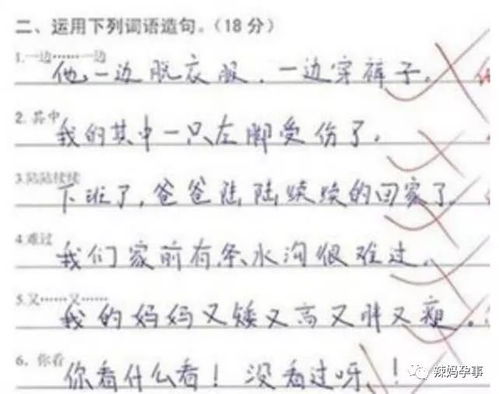 二、运用下列词语造句。(18分)
1.一边……一边
他一边脱衣服，一边穿裤子。
2.其中
我的其中一只左脚受伤了。
3.陆陆续续
下班了，爸爸陆陆续续的回家了
4.难过
我们家前有条水沟很难过。
5.又……又……
我的妈妈又矮又高又胖又瘦。
6.你看
你看什么看！没看过呀！
辣妈孕事